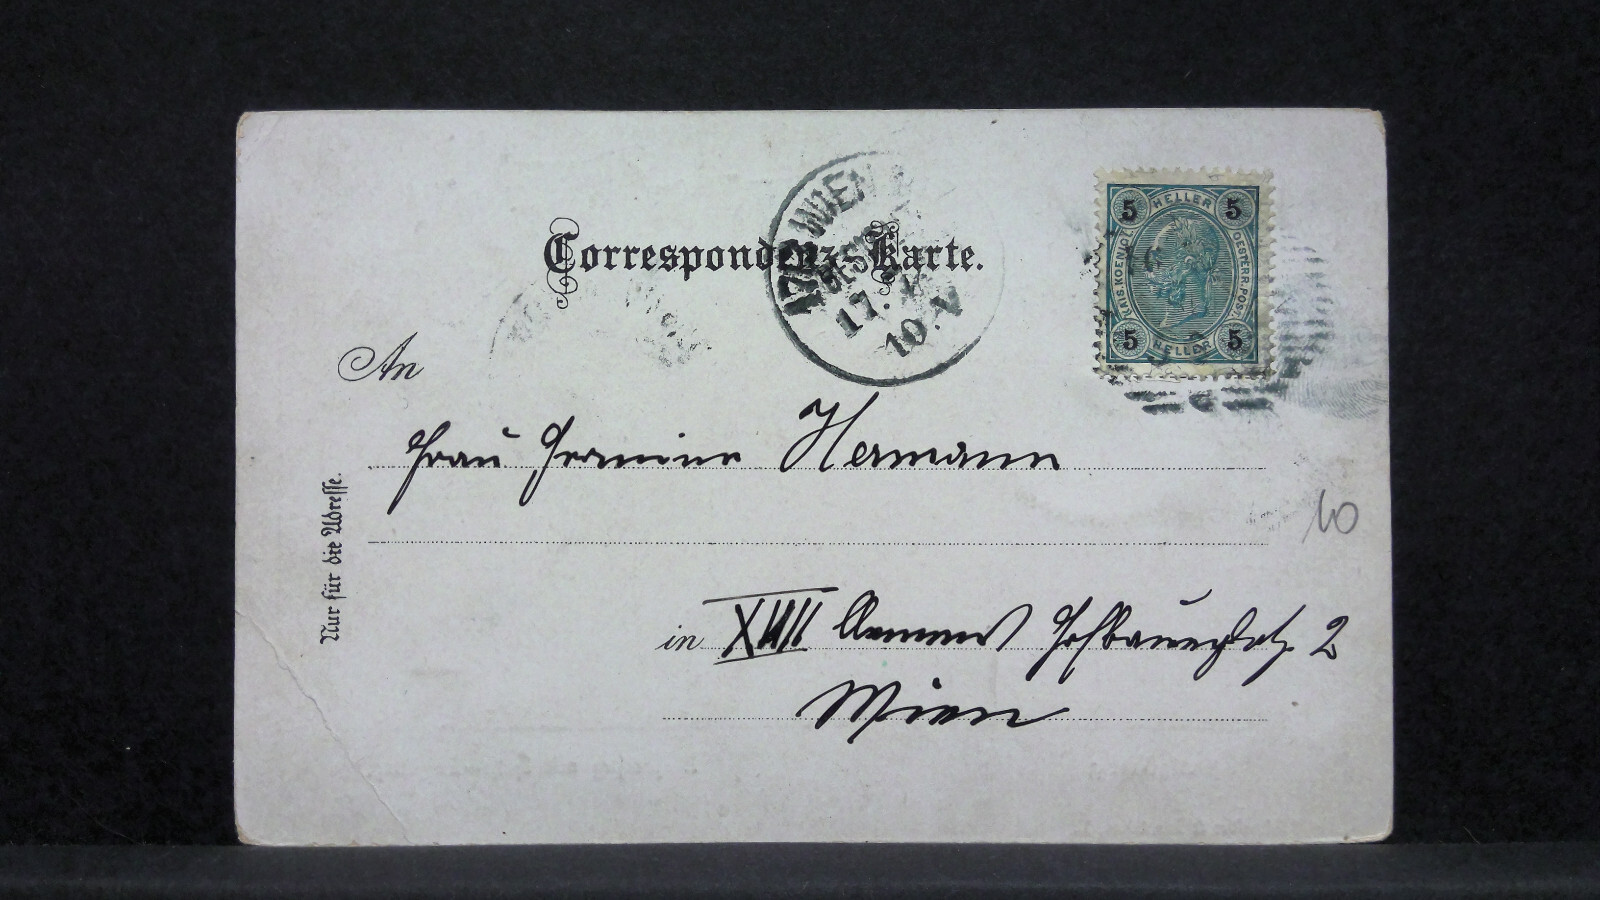 Correspondenz-Karte.
17/1 WIEN
BEST
17.
10.V
5 HELLER 5
KAIS.KOENIGL. OESTERR.POST.
5 HELLER 5
An
Frau Hermine Hermann
10
in XVIII Clemens Hofbauerplatz 2
Wien
Nur für die Adresse.